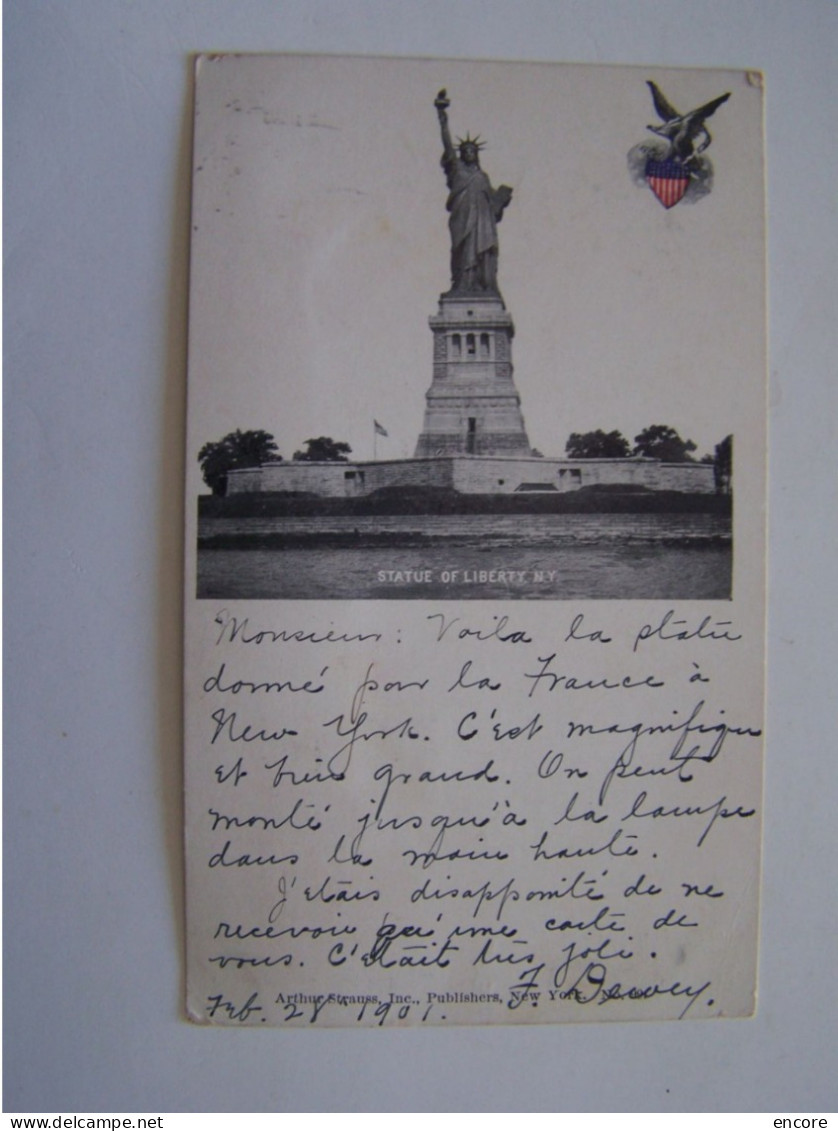 STATUE OF LIBERTY, N.Y.
Monsieur: Voila la statue
donné pour la France à
New York. C'est magnifique
et trés grand. On peut
monté jusqu'à la lampe
dans la main haute.
J'etais disappointé de ne
recevoir qu'une carte de
vous. C'était trés joli.
F. Dewey.
Arthur Strauss, Inc., Publishers, New York.
Feb. 28 1901.
DELCAMPE.NET
encore